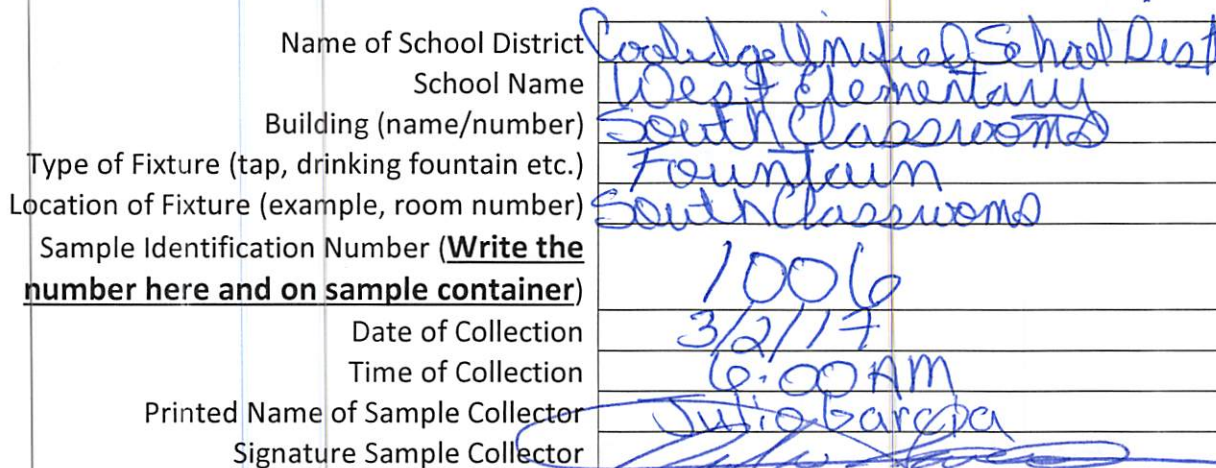 Name of School District Coolidge Unified School Dist
School Name West Elementary
Building (name/number) South Classrooms
Type of Fixture (tap, drinking fountain etc.) Fountain
Location of Fixture (example, room number) South Classrooms
Sample Identification Number (Write the
number here and on sample container) 1006
Date of Collection 3/2/17
Time of Collection 6:00 AM
Printed Name of Sample Collector Julio Garcia
Signature Sample Collector